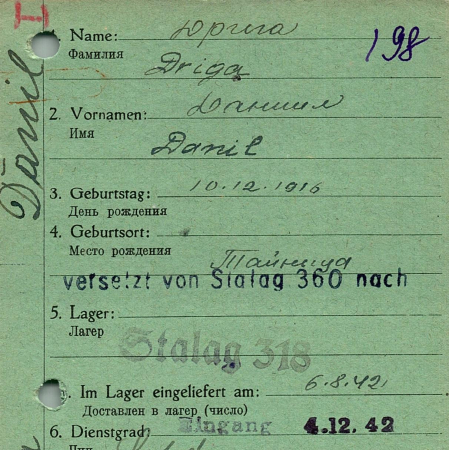 1. Name: Дрига
198
Фамилия
Driga
2. Vornamen: Даниил
Имя
Danil
Danil
3. Geburtstag: 10.12.1916
День рождения
4. Geburtsort:
Место рождения
Тайница
versetzt von Stalag 360 nach
5. Lager:
Лагер
Stalag 318
Im Lager eingeliefert am: 6.8.42
Доставлен в лагер (число)
Eingang 4.12.42
6. Dienstgrad: